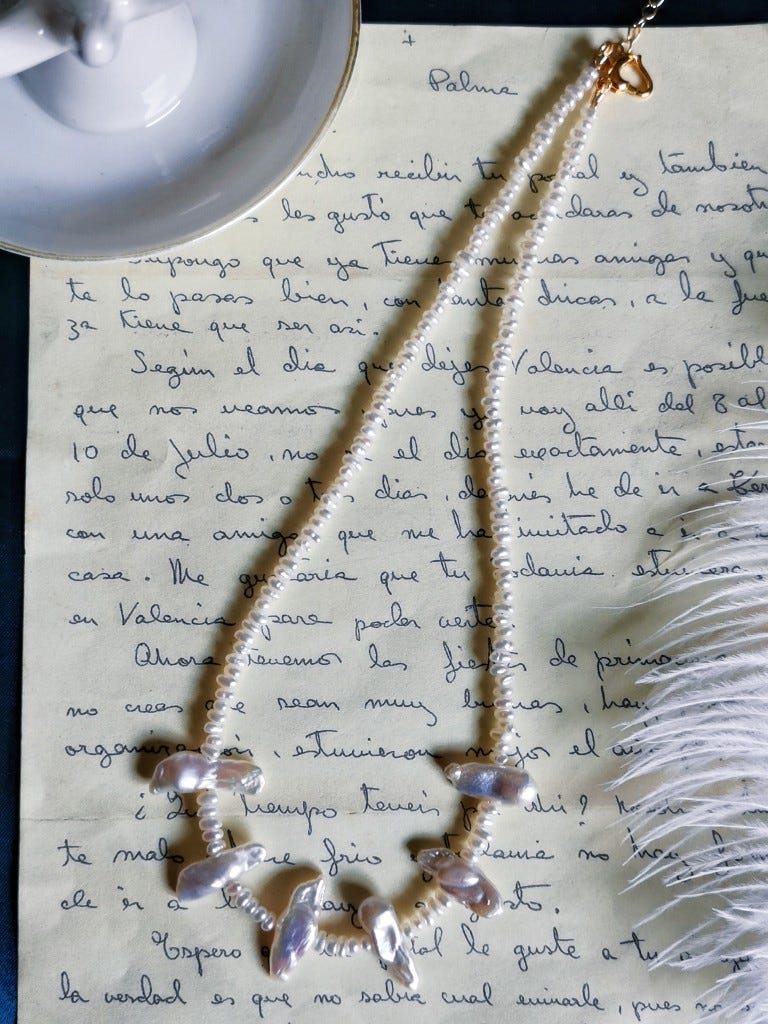 +
Palma
recibir tu postal y también
les gustó que te acordaras de
Supongo que ya tiene muchas amigas y
te lo pasas bien, con tantas chicas, a la
za tiene que ser así.
Según el día que dejes Valencia es
que nos veamos pues yo voy allí del 8 al
10 de Julio, no el día exactamente,
solo unos dos o tres dias, después he de ir a
con una amiga que me ha invitado a ir a
casa. Me gustaría que tu todavia
en Valencia para poder verte.
Ahora tenemos las fiestas de
no creas que sean muy buenas,
organización, estuvieron mejor el
¿Que tiempo teneis por ahi?
te malo, hace frio y todavia no hay
de ir a la a gusto.
Espero que le guste a tu
la verdad es que no sabia cual enviarle, pues no